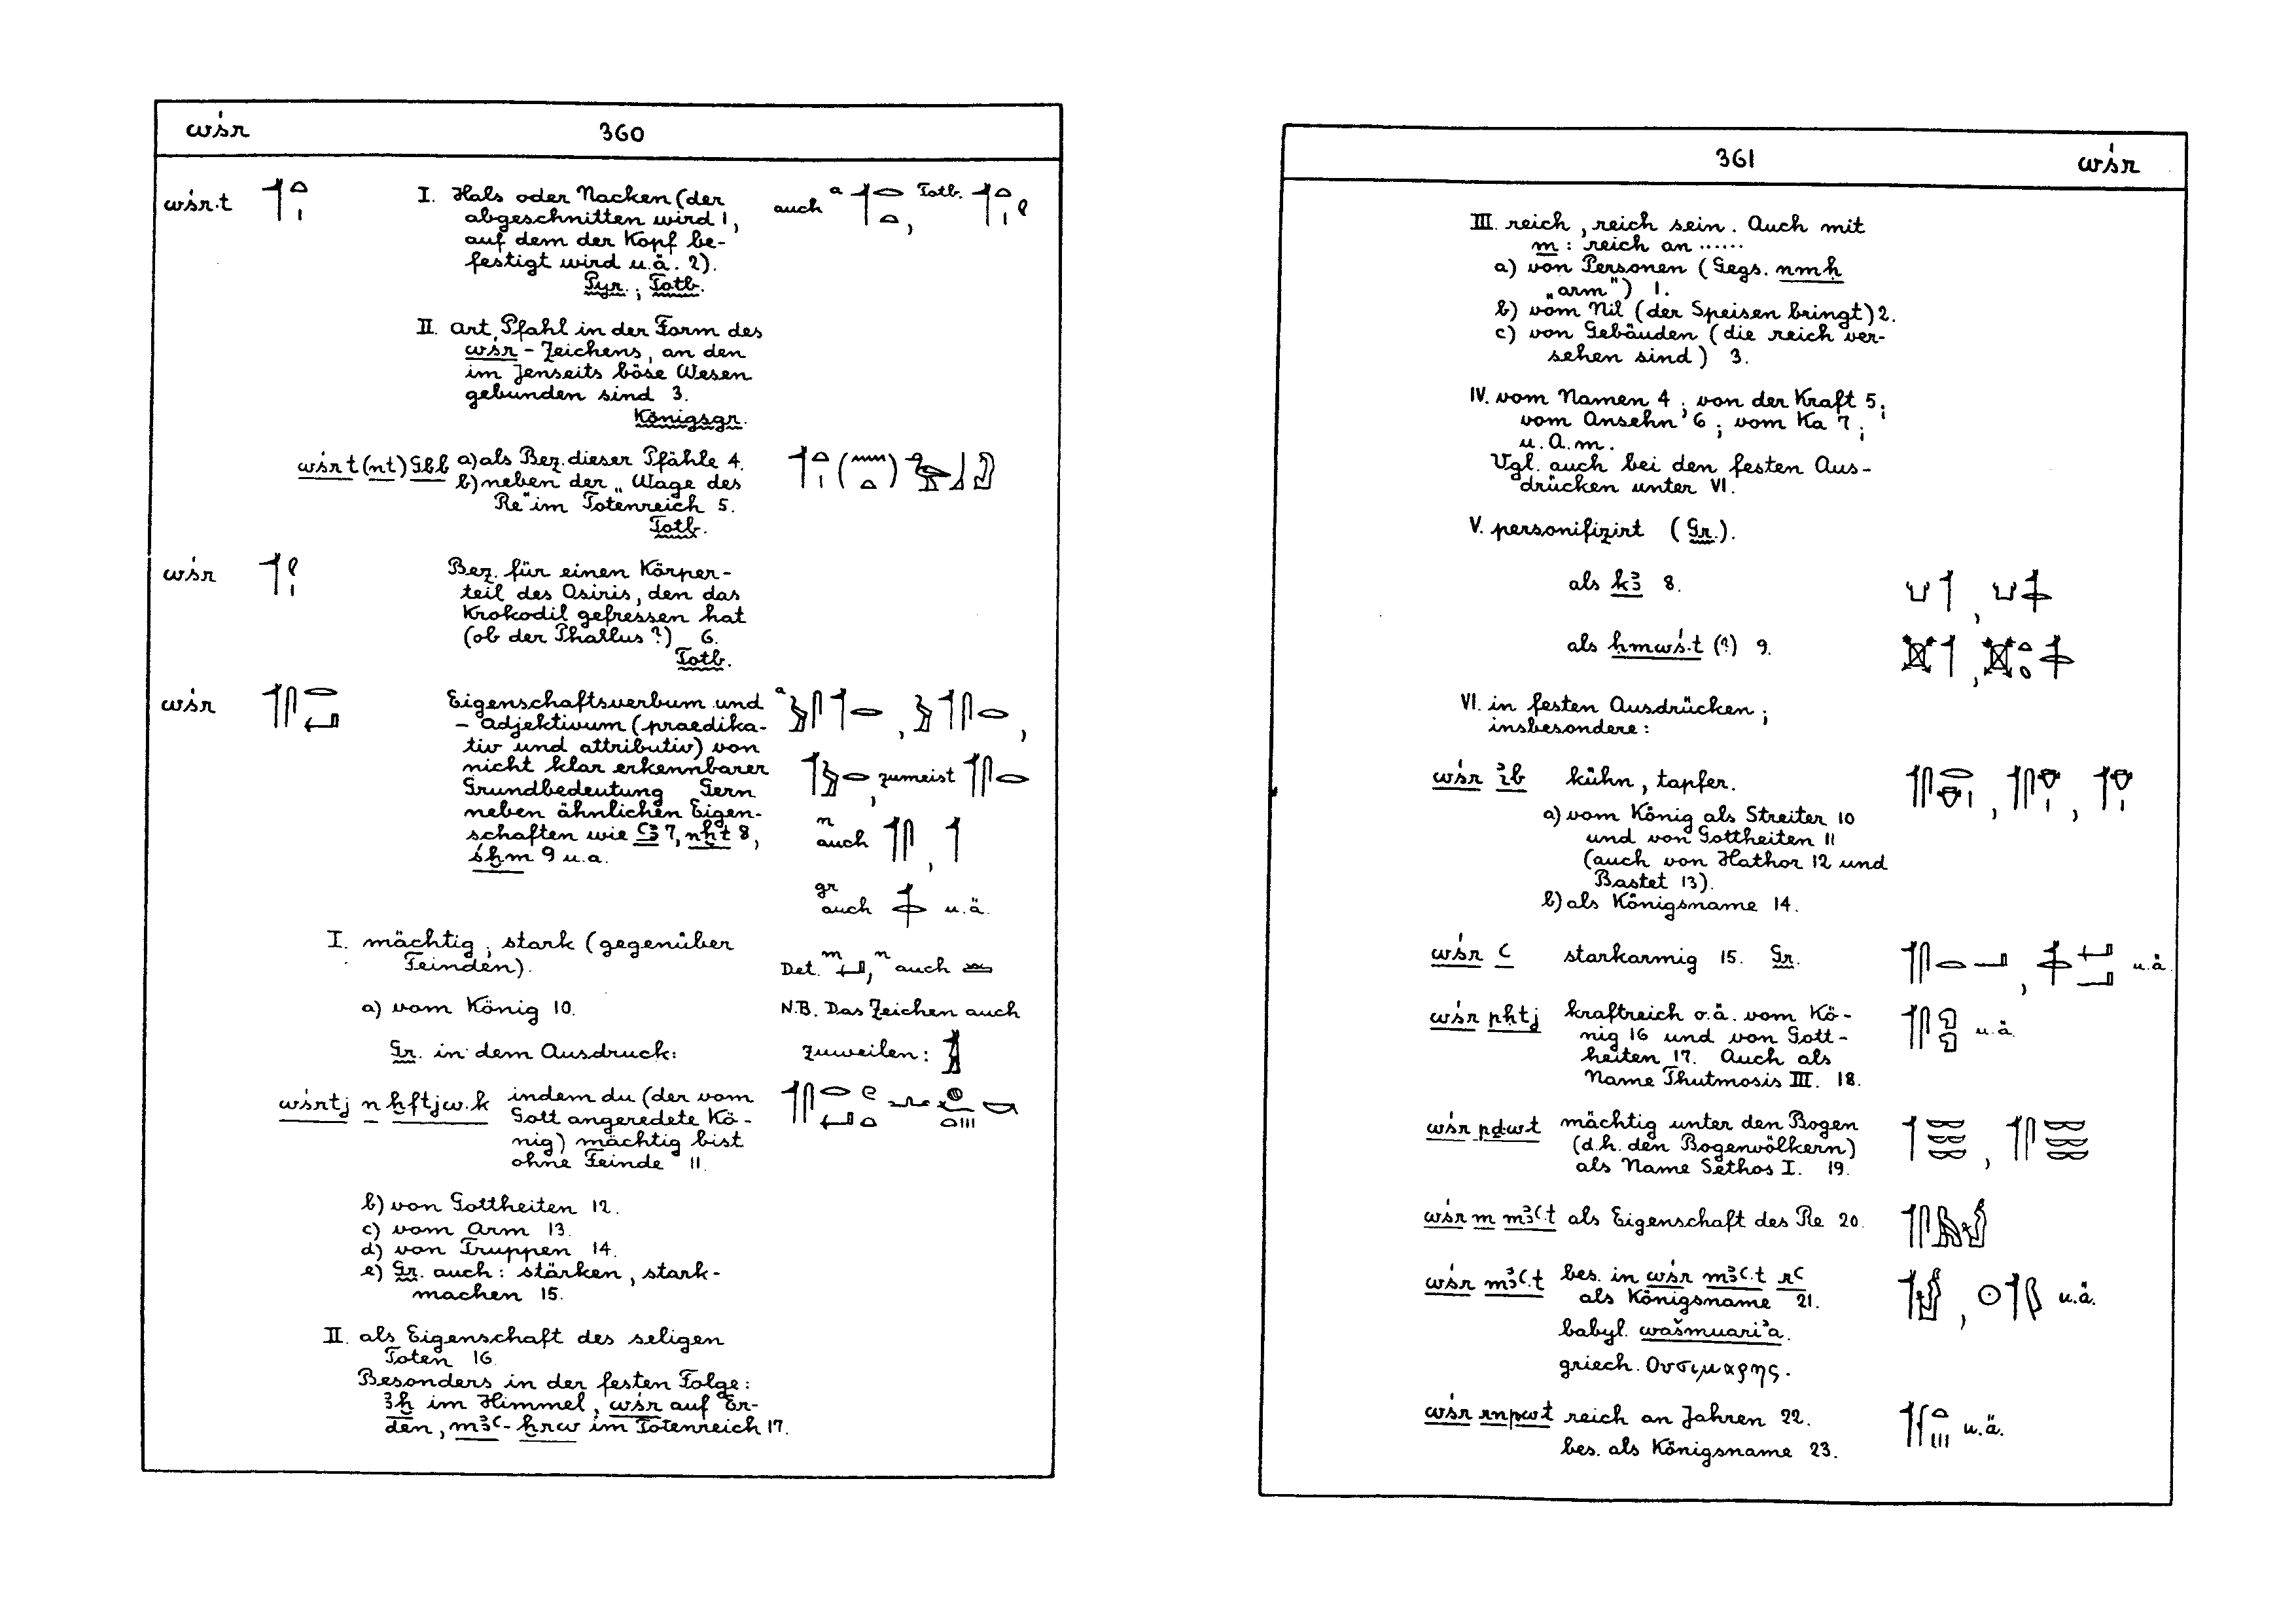 wśr 360
wśr.t I. Hals oder Nacken (der auch a , Totb.
abgeschnitten wird 1,
auf dem der Kopf be-
festigt wird u.ä. 2).
Pyr.; Totb.
II. Art Pfahl in der Form des
wśr-Zeichens, an den
im Jenseits böse Wesen
gebunden sind 3.
Königsgr.
wśrt (nt) Gbb a) als Bez. dieser Pfähle 4.
b) neben der „Wage des
Re" im Totenreich 5.
Totb.
wśr Bez. für einen Körper-
teil des Osiris, den das
Krokodil gefressen hat
(ob der Phallus?) 6.
Totb.
wśr Eigenschaftsverbum und a
- Adjektivum (praedika-
tiv und attributiv) von
nicht klar erkennbarer , zumeist
Grundbedeutung Gern
neben ähnlichen Eigen-
schaften wie ꜥꜣ 7, nḫt 8, n auch
śḫm 9 u.a.
gr auch u.ä.
I. mächtig, stark (gegenüber
Feinden). Det. m , n auch
a) vom König 10. N.B. Das Zeichen auch
Gr. in dem Ausdruck: zuweilen:
wśrtj n ḫftjw.k indem du (der vom
Gott angeredete Kö-
nig) mächtig bist
ohne Feinde 11.
b) von Gottheiten 12.
c) vom Arm 13.
d) von Truppen 14.
e) Gr. auch: stärken, stark-
machen 15.
II. als Eigenschaft des seligen
Toten 16.
Besonders in der festen Folge:
ꜣḫ im Himmel, wśr auf Er-
den, mꜣꜥ-ḫrw im Totenreich 17.
361 wśr
III. reich, reich sein. Auch mit
m: reich an ......
a) von Personen (Gegs. nmḥ
„arm") 1.
b) vom Nil (der Speisen bringt) 2.
c) von Gebäuden (die reich ver-
sehen sind) 3.
IV. vom Namen 4; von der Kraft 5;
vom Ansehn 6; vom Ka 7;
u. A. m.
Vgl. auch bei den festen Aus-
drücken unter VI.
V. personifizirt (Gr.).
als kꜣ 8.
als ḥmwś.t (?) 9.
VI. in festen Ausdrücken;
insbesondere:
wśr ꞽb kühn, tapfer.
a) vom König als Streiter 10
und von Gottheiten 11
(auch von Hathor 12 und
Bastet 13).
b) als Königsname 14.
wśr ꜥ starkarmig 15. Gr. u.ä.
wśr pḥtj kraftreich o.ä. vom Kö- u.ä.
nig 16 und von Gott-
heiten 17. Auch als
Name Thutmosis III. 18.
wśr pḏwt mächtig unter den Bogen
(d.h. den Bogenvölkern)
als Name Sethos I. 19.
wśr m mꜣꜥ.t als Eigenschaft des Re 20.
wśr mꜣꜥ.t bes. in wśr mꜣꜥ.t rꜥ
als Königsname 21. u.ä.
babyl. wašmuariʾa.
griech. Ουσιμαρης.
wśr rnpwt reich an Jahren 22. u.ä.
bes. als Königsname 23.